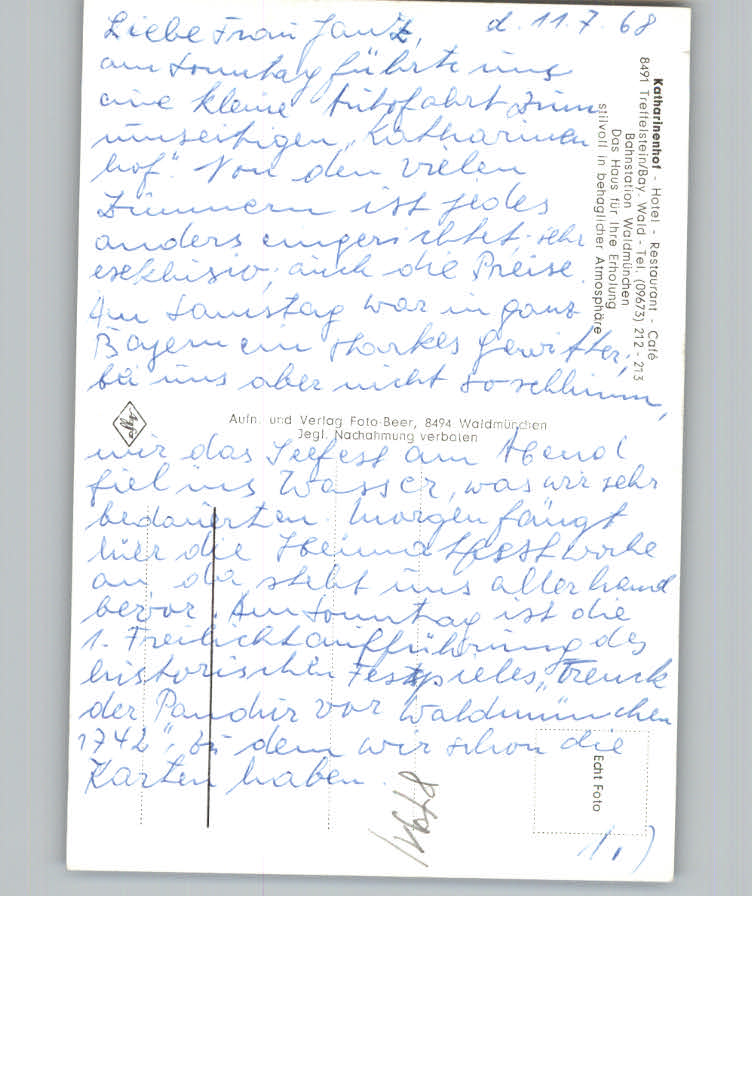 d. 11.7.68
Liebe Frau Jantz,
am Sonntag führte uns
eine kleine Autofahrt zum
umseitigen „Katharinen
hof". Von den vielen
Zimmern ist jedes
anders eingerichtet, sehr
exklusiv, auch die Preise.
Am Samstag war in ganz
Bayern ein starkes Gewitter,
bei uns aber nicht so schlimm,
nur das Seefest am Abend
fiel ins Wasser, was wir sehr
bedauerten. Morgen fängt
hier die Heimatfestwoche
an, da steht uns allerhand
bevor. Am Sonntag ist die
1. Freilichtaufführung des
historischen Festspieles „Trenck
der Pandur vor Waldmünchen
1742", zu dem wir schon die
Karten haben.
1.)
Katharinenhof - Hotel - Restaurant - Café
8491 Treffelstein/Bay. Wald - Tel. (09673) 212 - 213
Bahnstation Waldmünchen
Das Haus für Ihre Erholung
stilvoll in behaglicher Atmosphäre
Agfa
Aufn. und Verlag Foto-Beer, 8494 Waldmünchen
Jegl. Nachahmung verboten
Echt Foto
8491